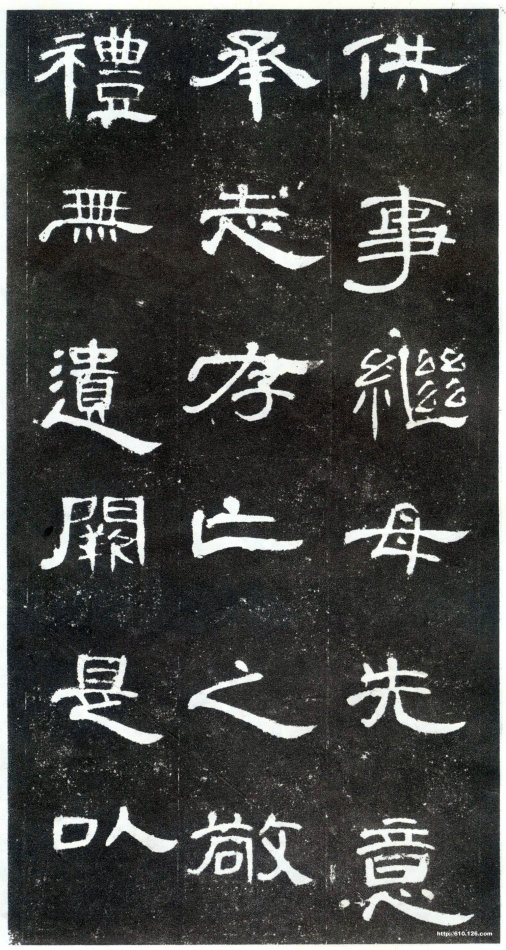 供事繼母先意
承志存亡之敬
禮無遺闕是以
http://610.126.com